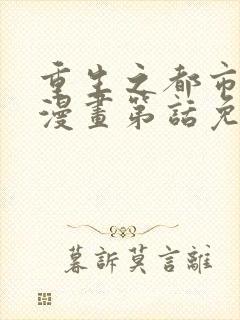 重生之都市
漫畫第話免
暮訴莫言離